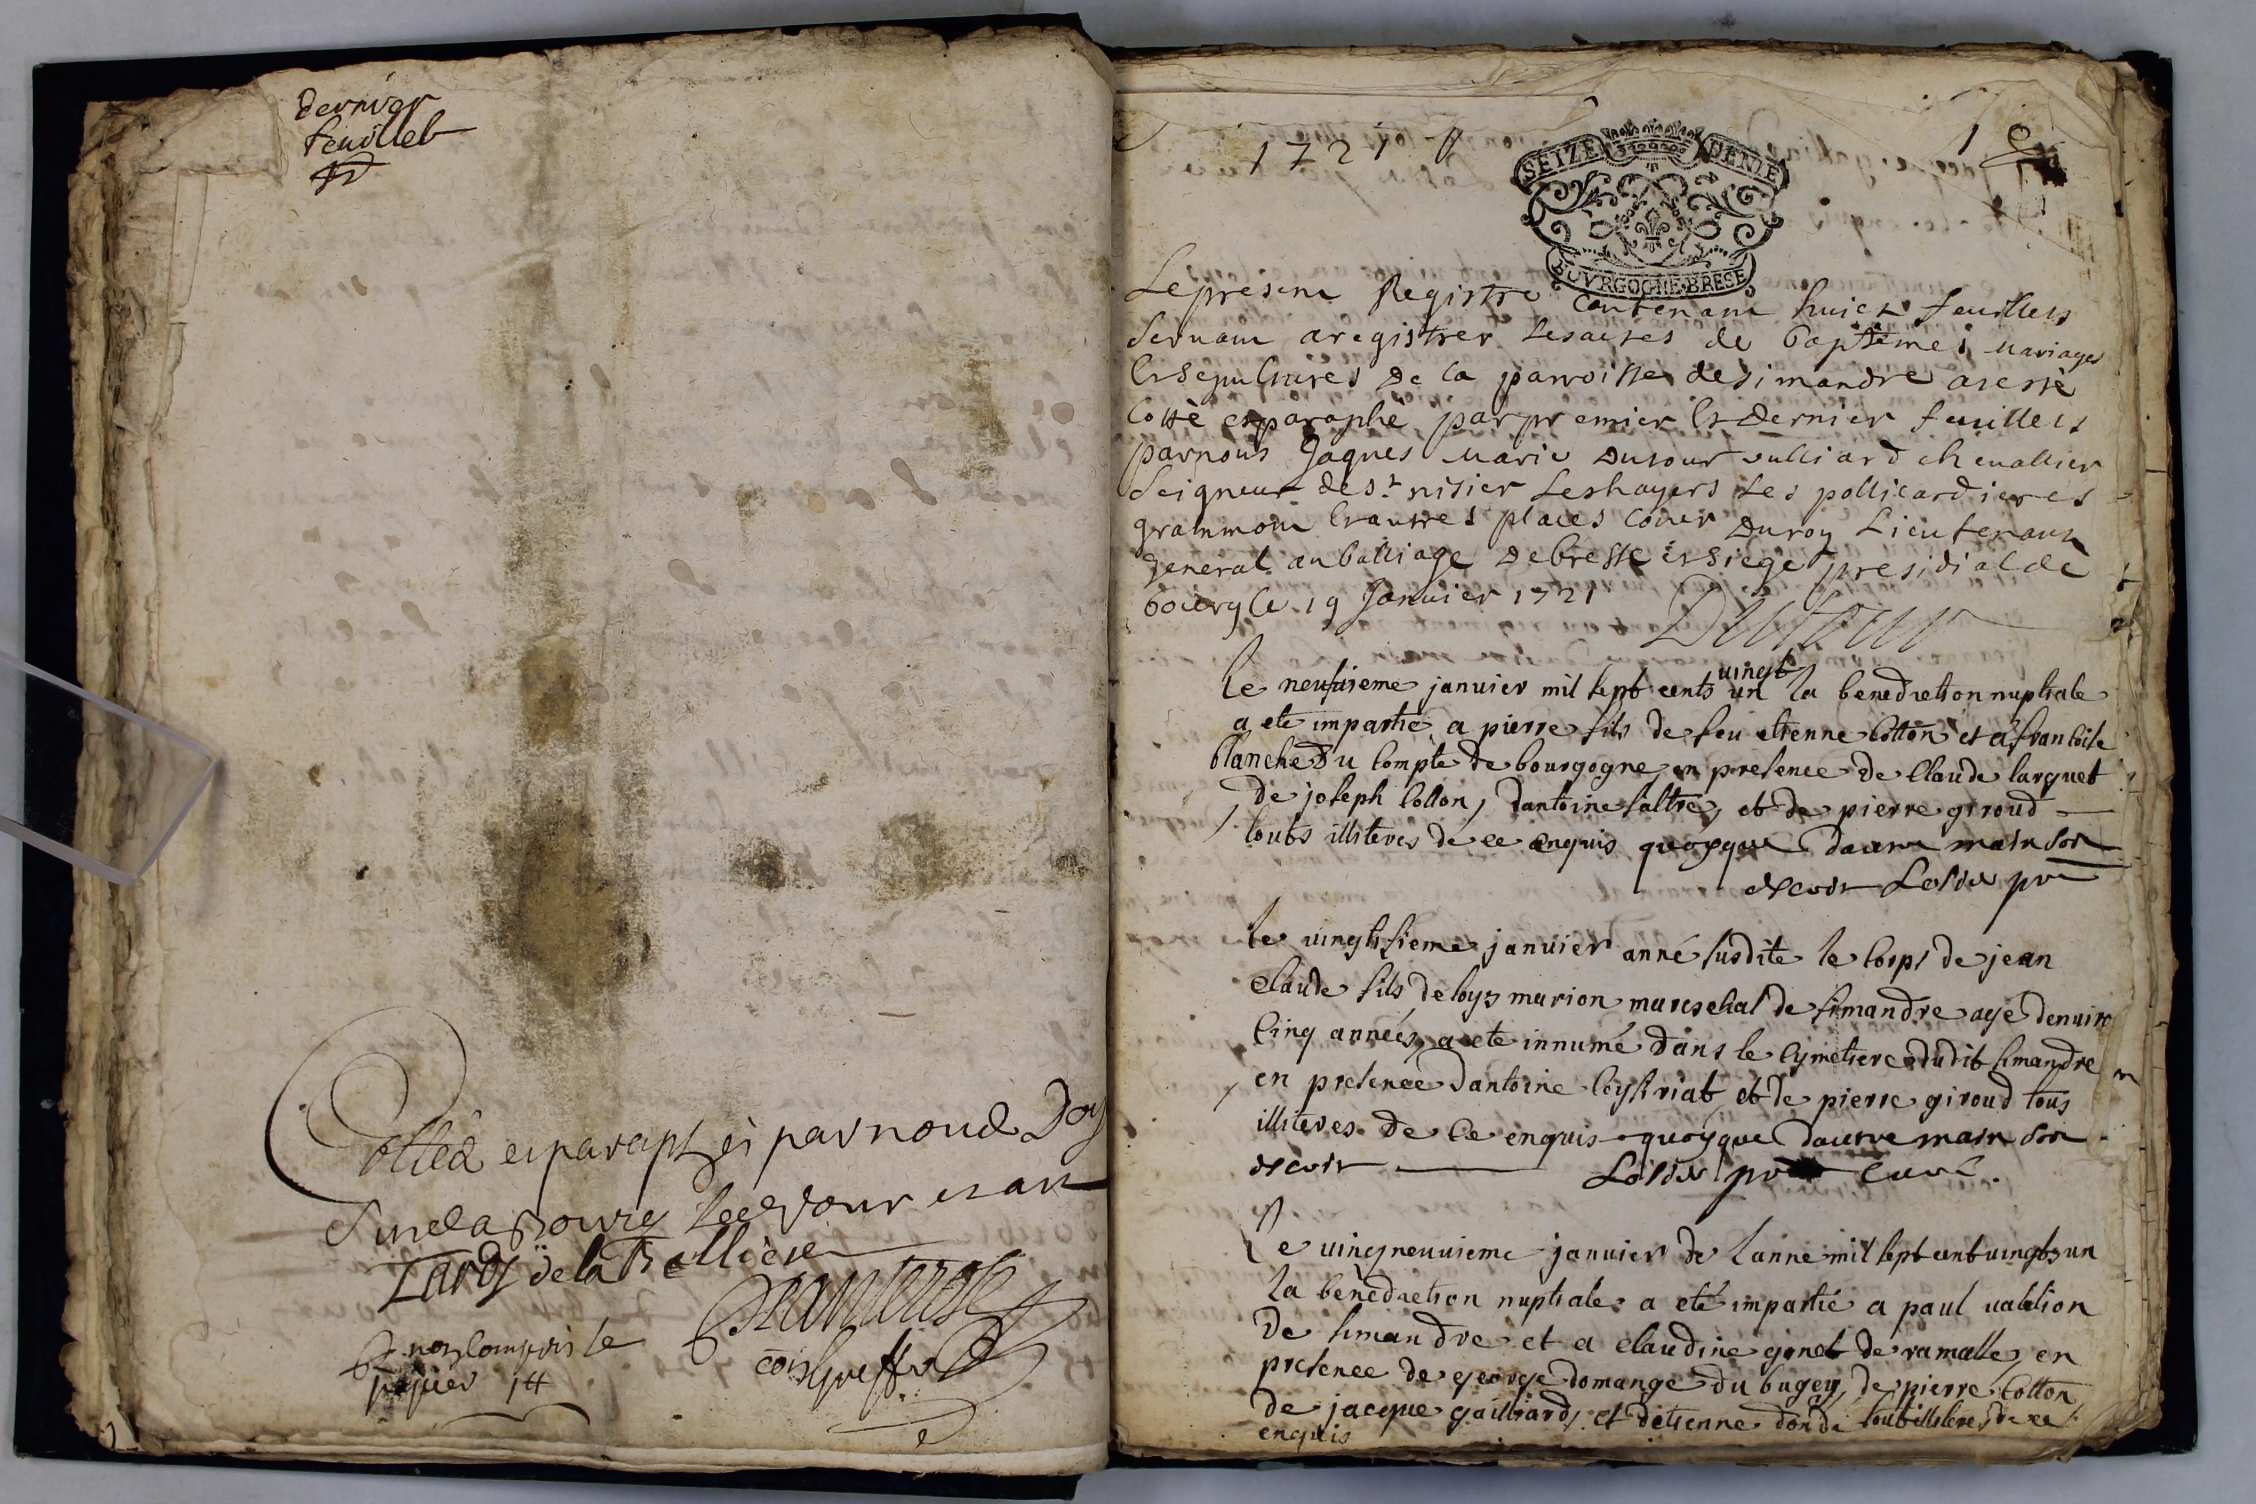 dernier
feuillet
Cottéé et paraphéé par nous Doy
Sindabourg lesd jour et an
Lardy de la Bellière
non compris le
papier 1#
cons greffr
1721
1
SEIZE DENIE
BOVRGOGNE·BRESE
Le present Registre contenant huict feuillets
servant a registrer les actes de baptême, mariages
et sepultures de la parroisse de simandre a esté
cotté et paraphé par premier et dernier feuillets
par nous Jaques Marie Dutour vulliard chevallier
seigneur de st nisier les hayers les pollicardieres
grammont et autres places coner du roy Lieutenant
general au balliage de bresse et siege presidial de
bourg le 19 Janvier 1721
Dutour
le neufuieme janvier mil sept cents vingt un la benediction nuptiale
a ete impartie a pierre fils de feu etienne cotton et a francoise
blanche du compte de bourgogne en presence de claude larguet
de joseph cotton, dantoine faltre, et de pierre giroud
touts illiteres de ce enquis quoyque dautre main soit
escrit Losier ptre
le vingtisieme janvier anné susdite le corps de jean
claude fils de loys marion mareschal de simandre agé denviro
cinq années, a ete innumé dans le cymetiere dudit simandre
en presence dantoine coystriat et de pierre giroud tous
illiteres de ce enquis quoyque dautre main soit
escrit Losier ptre curé.
Le vingneuvieme janvier de lanne mil sept cent vingts un
la bénédiction nuptiale a eté impartie a paul valition
de simandre et a claudine gonet de ramasse, en
presence de george domange du bugey, de pierre cotton
de jacque gailliard, et detienne donde touts illiteres de ce
enquis